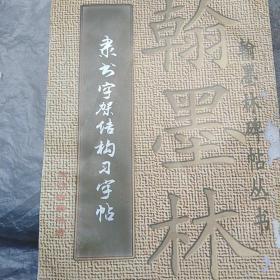 翰墨林碑帖丛书
翰墨林
隶书字架结构习字帖